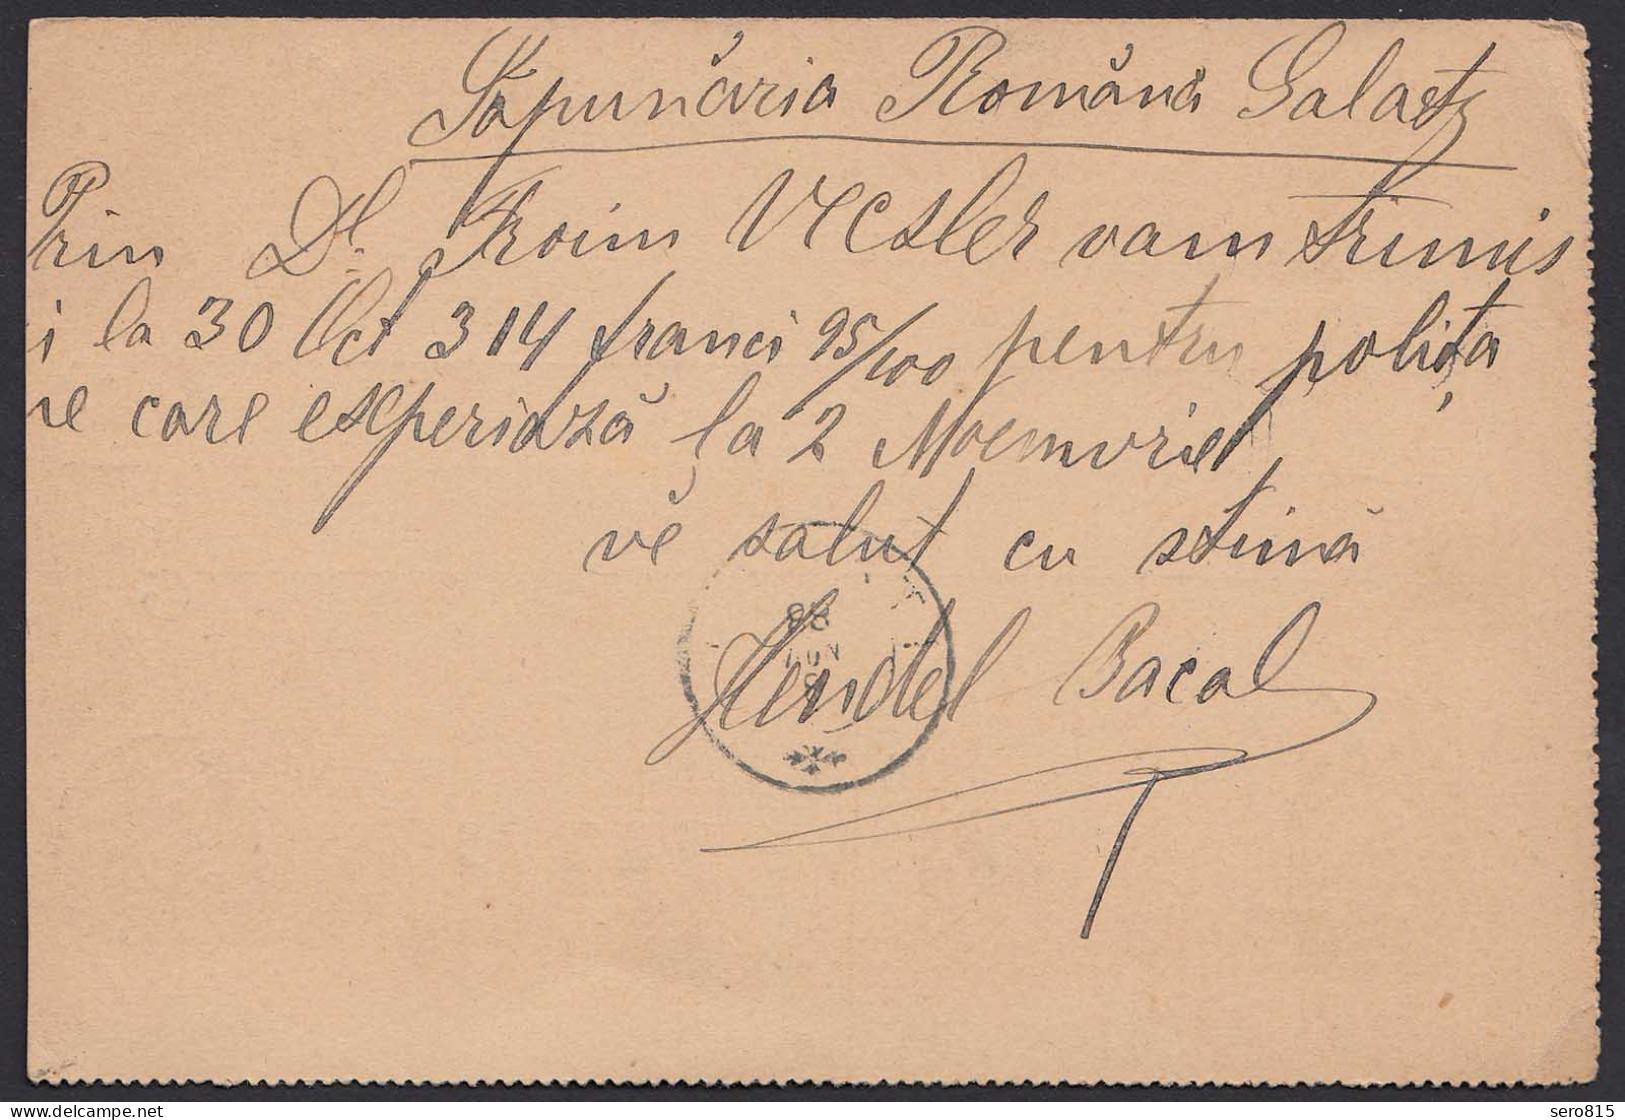 Săpunăria Română Galatz
Prin Dl. Froim Vecsler vam trimis
i la 30 Oct 314 franci 95/100 pentru polița
ne care experiază la 2 Noemvrie
vĕ salut cu stimă
Hendel Bacal
98
NOV
delcampe.net
sero815